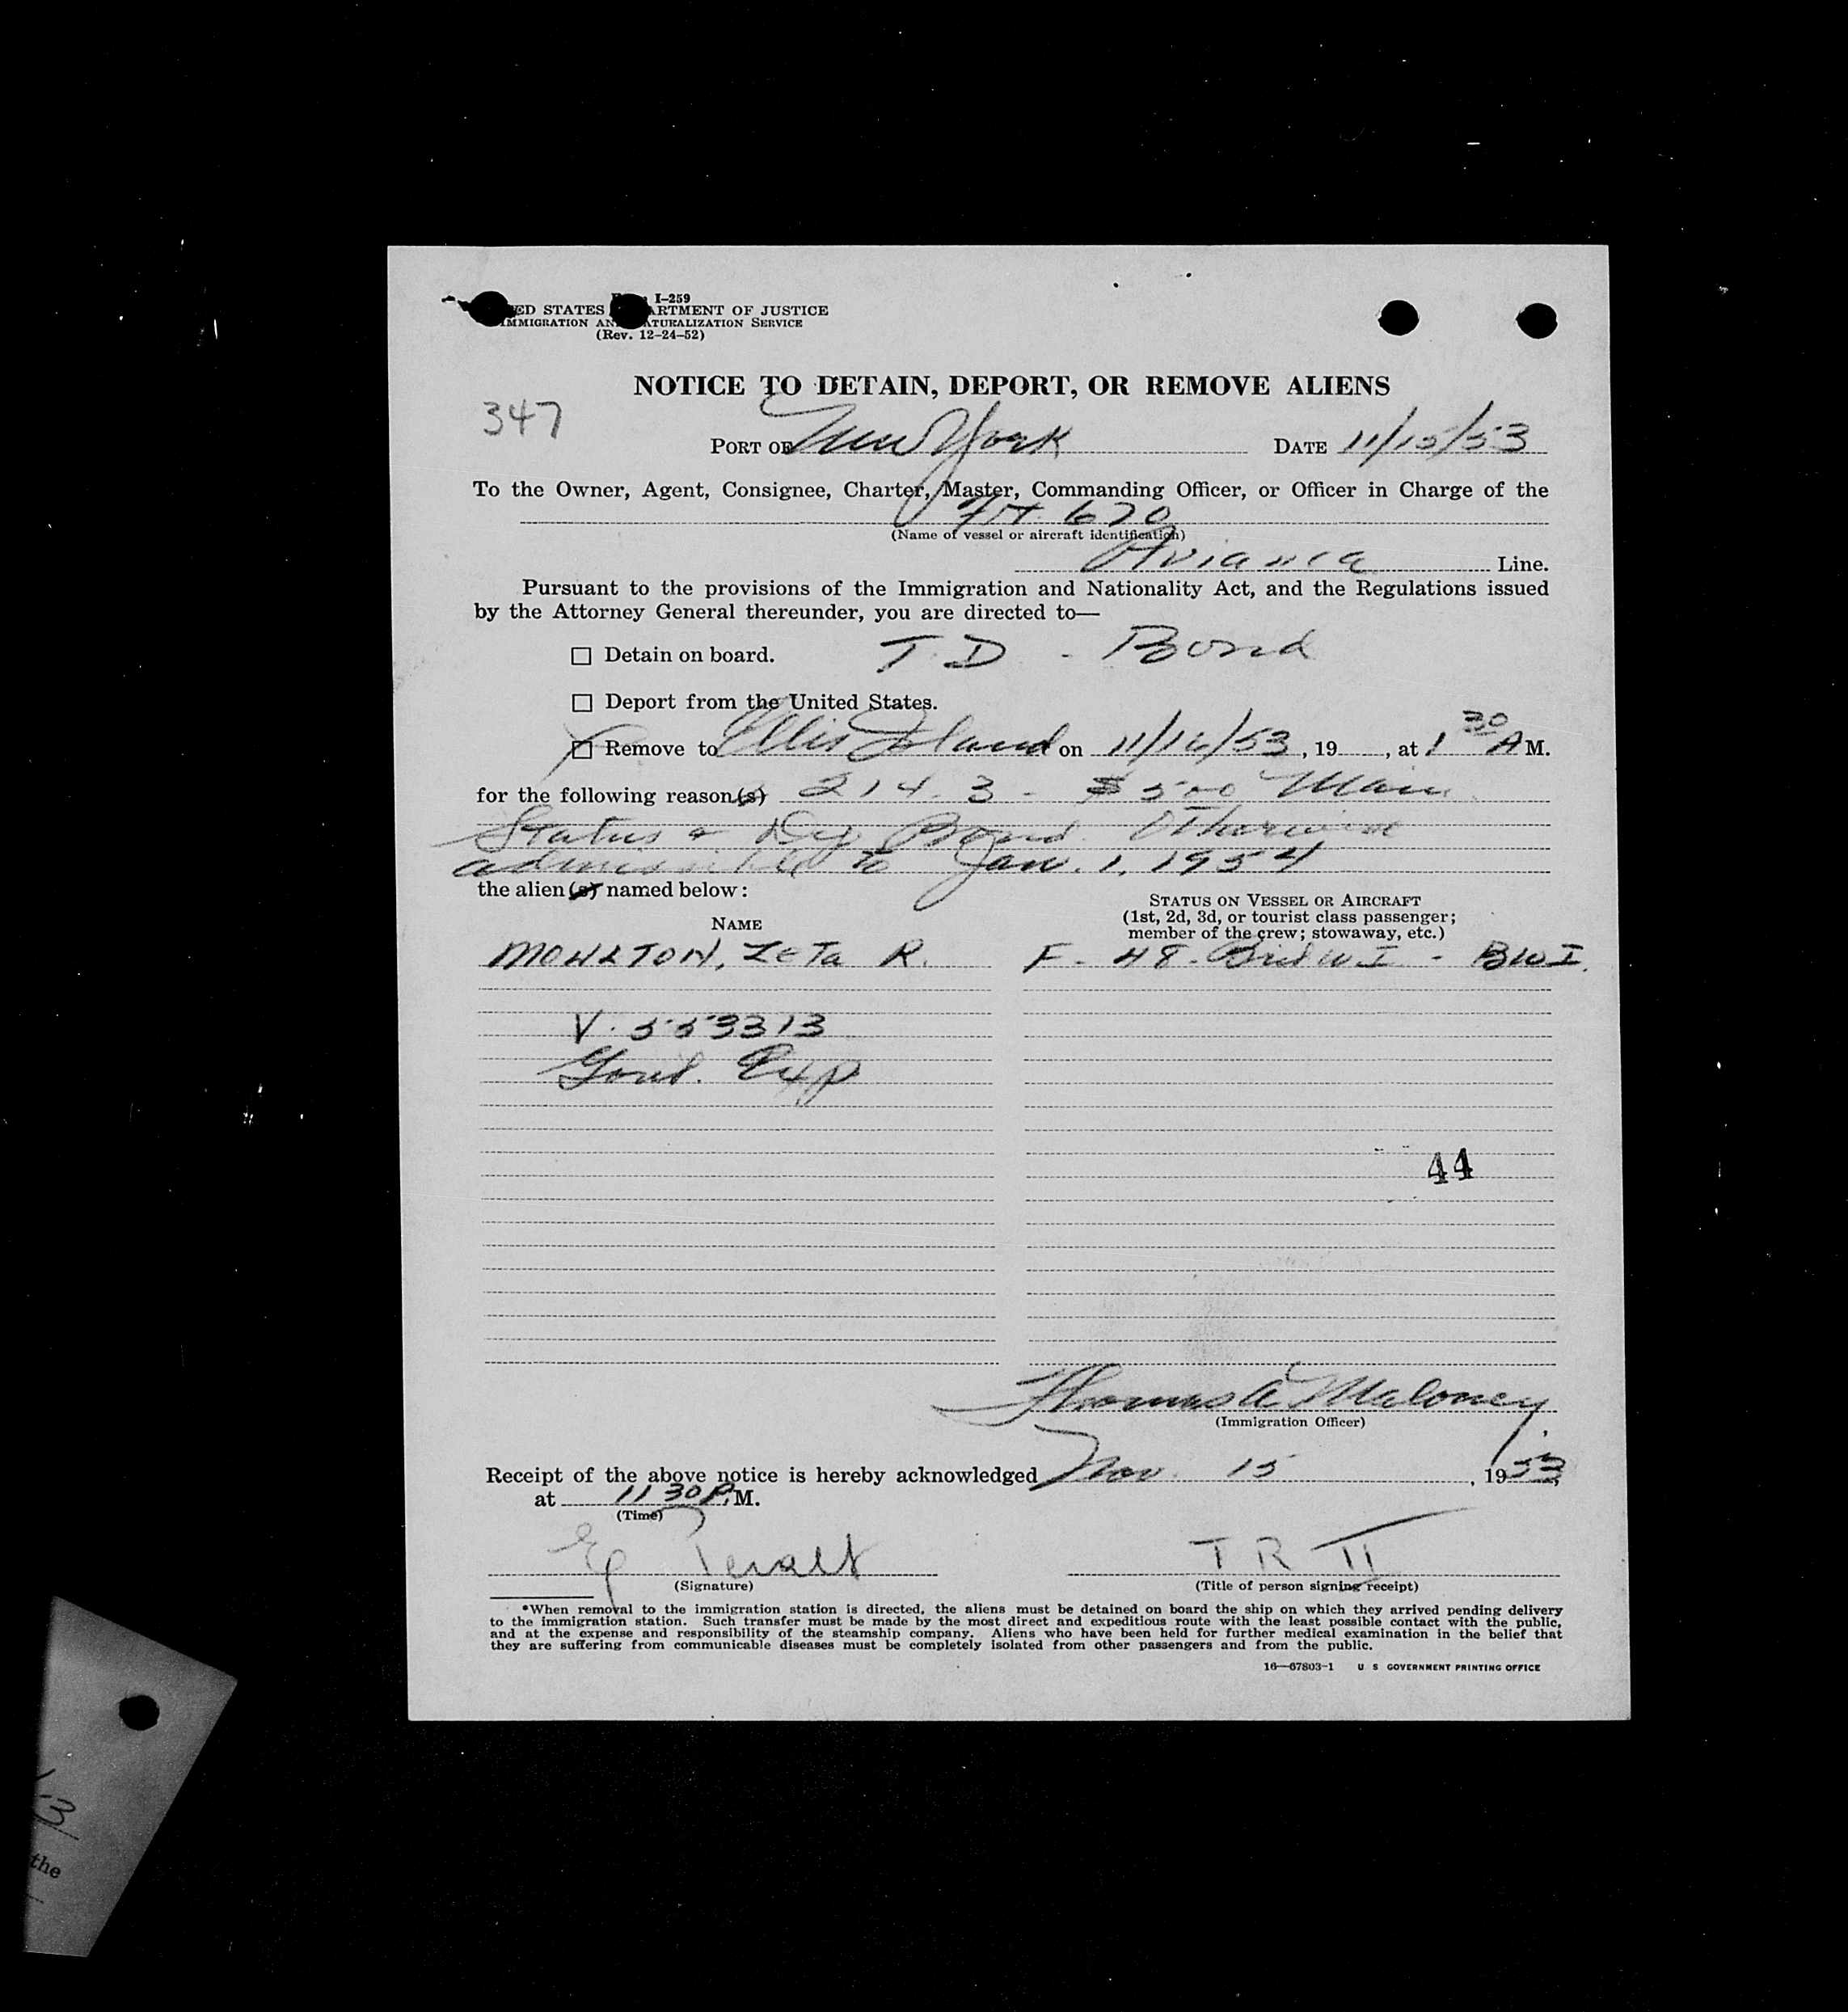 I-259
ED STATES ARTMENT OF JUSTICE
IMMIGRATION AN ATURALIZATION SERVICE
(Rev. 12-24-52)
NOTICE TO DETAIN, DEPORT, OR REMOVE ALIENS
347
PORT OF New York DATE 11/15/53
To the Owner, Agent, Consignee, Charter, Master, Commanding Officer, or Officer in Charge of the
Flt. 670
(Name of vessel or aircraft identification)
Avianca Line.
Pursuant to the provisions of the Immigration and Nationality Act, and the Regulations issued
by the Attorney General thereunder, you are directed to—
☐ Detain on board. T.D - Bond
☐ Deport from the United States.
☐ Remove to Ellis Island on 11/16/53, 19, at 1 30 A M.
for the following reason(s) 214.3 - $500 Main
Status & Dep Bond. Otherwise
admissible to Jan. 1, 1954
the alien(s) named below:
NAME
STATUS ON VESSEL OR AIRCRAFT
(1st, 2d, 3d, or tourist class passenger;
member of the crew; stowaway, etc.)
MOULTON, Zeta R. F - 48 - Brit W I - BWI.
V. 553313
Govt. Exp
44
Thomas A Maloney
(Immigration Officer)
Receipt of the above notice is hereby acknowledged Nov. 15, 1953,
at 11 30 P.M.
(Time)
T R II
(Signature)
(Title of person signing receipt)
*When removal to the immigration station is directed, the aliens must be detained on board the ship on which they arrived pending delivery
to the immigration station. Such transfer must be made by the most direct and expeditious route with the least possible contact with the public,
and at the expense and responsibility of the steamship company. Aliens who have been held for further medical examination in the belief that
they are suffering from communicable diseases must be completely isolated from other passengers and from the public.
16—67803-1 U S GOVERNMENT PRINTING OFFICE
3
the